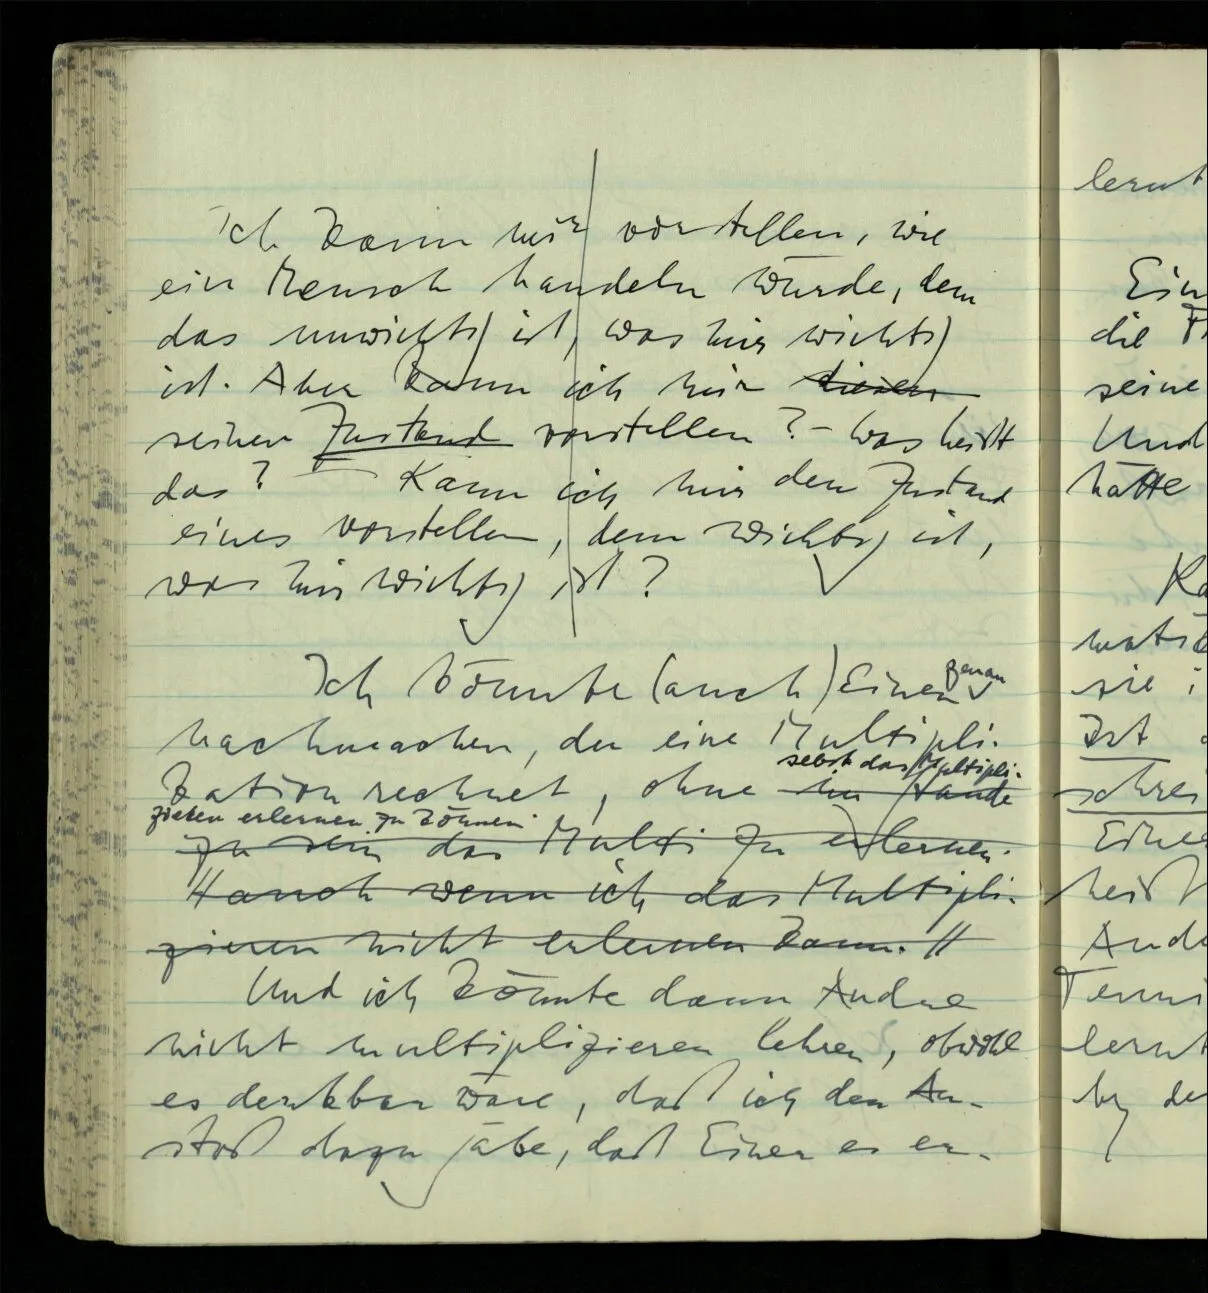 Ich kann mir vorstellen, wie
ein Mensch handeln würde, dem
das unwichtig ist, was mir wichtig
ist. Aber kann ich mir diesen
seinen Zustand vorstellen? – Was heißt
das? Kann ich mir den Zustand
eines vorstellen, dem wichtig ist,
was mir wichtig ist?
Ich könnte (auch) Einen genau
nachmachen, der eine Multipli-
kation rechnet, ohne im Stande
selbst das Multipli-
zieren erlernen zu können.
zu sein das Multi zu erlernen.
//auch wenn ich das Multipli-
zieren nicht erlernen kann.//
Und ich könnte dann Andre
nicht multiplizieren lehren, obwohl
es denkbar wäre, daß ich den An-
stoß dazu gäbe, daß Einer es er-
lernt
Ein
die
seine
Und
hätte
Ka
sie
Ist
schrei
Eine
heißt
Ande
Tenni
lernt